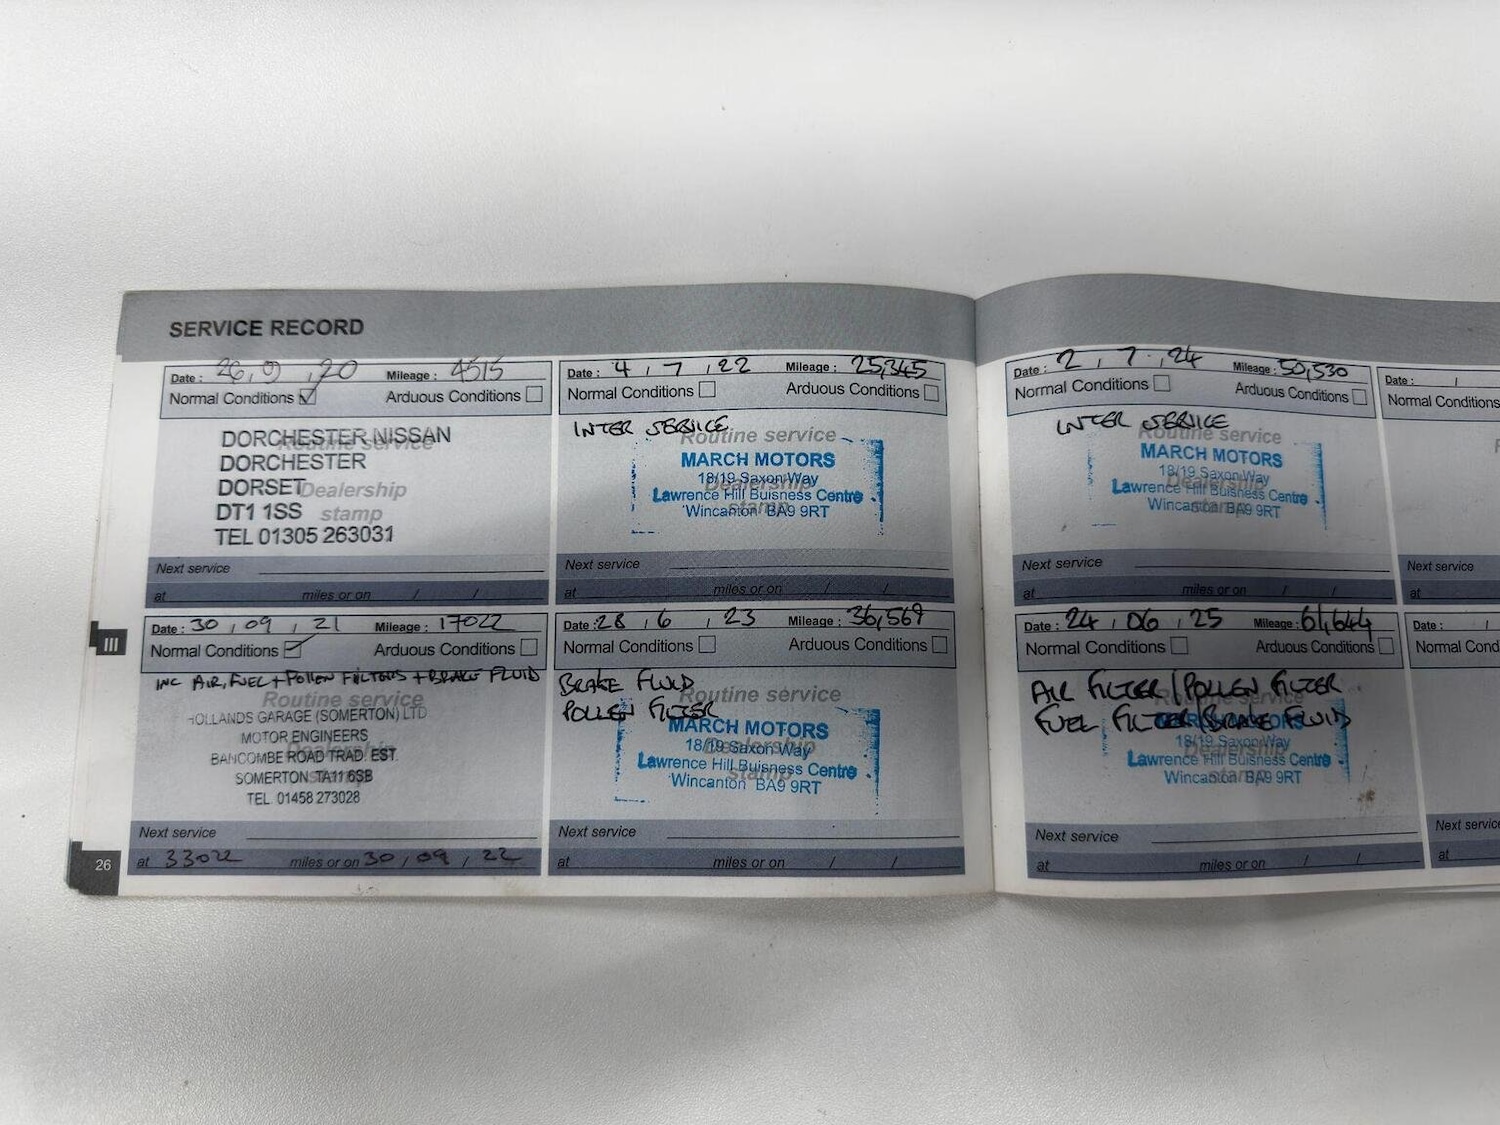 SERVICE RECORD
Date : 26, 9, 20 Mileage : 4515
Normal Conditions Arduous Conditions
Routine service
DORCHESTER NISSAN
DORCHESTER
DORSET
Dealership
DT1 1SS
stamp
TEL 01305 263031
Next service
at miles or on / /
Date : 30, 09, 21 Mileage : 17022
Normal Conditions Arduous Conditions
INC AIR, FUEL + POLLEN FILTERS + BRAKE FLUID
Routine service
HOLLANDS GARAGE (SOMERTON) LTD
MOTOR ENGINEERS
Dealership
BANCOMBE ROAD TRAD. EST.
stamp
SOMERTON. TA11 6SB
TEL. 01458 273028
Next service
at 33022 miles or on 30 / 09 / 22
III
26
Date : 4, 7, 22 Mileage : 25,345
Normal Conditions Arduous Conditions
INTER SERVICE
Routine service
MARCH MOTORS
18/19 Saxon Way
Dealership
Lawrence Hill Buisness Centre
stamp
Wincanton BA9 9RT
Next service
at miles or on / /
Date : 28, 6, 23 Mileage : 36,569
Normal Conditions Arduous Conditions
BRAKE FLUID
Routine service
POLLEN FILTER
MARCH MOTORS
18/19 Saxon Way
Dealership
Lawrence Hill Buisness Centre
stamp
Wincanton BA9 9RT
Next service
at miles or on / /
Date : 2, 7, 24 Mileage : 50,530
Normal Conditions Arduous Conditions
INTER SERVICE
Routine service
MARCH MOTORS
18/19 Saxon Way
Dealership
Lawrence Hill Buisness Centre
stamp
Wincanton BA9 9RT
Next service
at miles or on / /
Date : 24, 06, 25 Mileage : 61,644
Normal Conditions Arduous Conditions
AIR FILTER / POLLEN FILTER
Routine service
FUEL FILTER / BRAKE FLUID
MARCH MOTORS
18/19 Saxon Way
Dealership
Lawrence Hill Buisness Centre
stamp
Wincanton BA9 9RT
Next service
at miles or on / /
Date : /
Normal Conditions
Next service
at
Date : /
Normal Cond
Next service
at